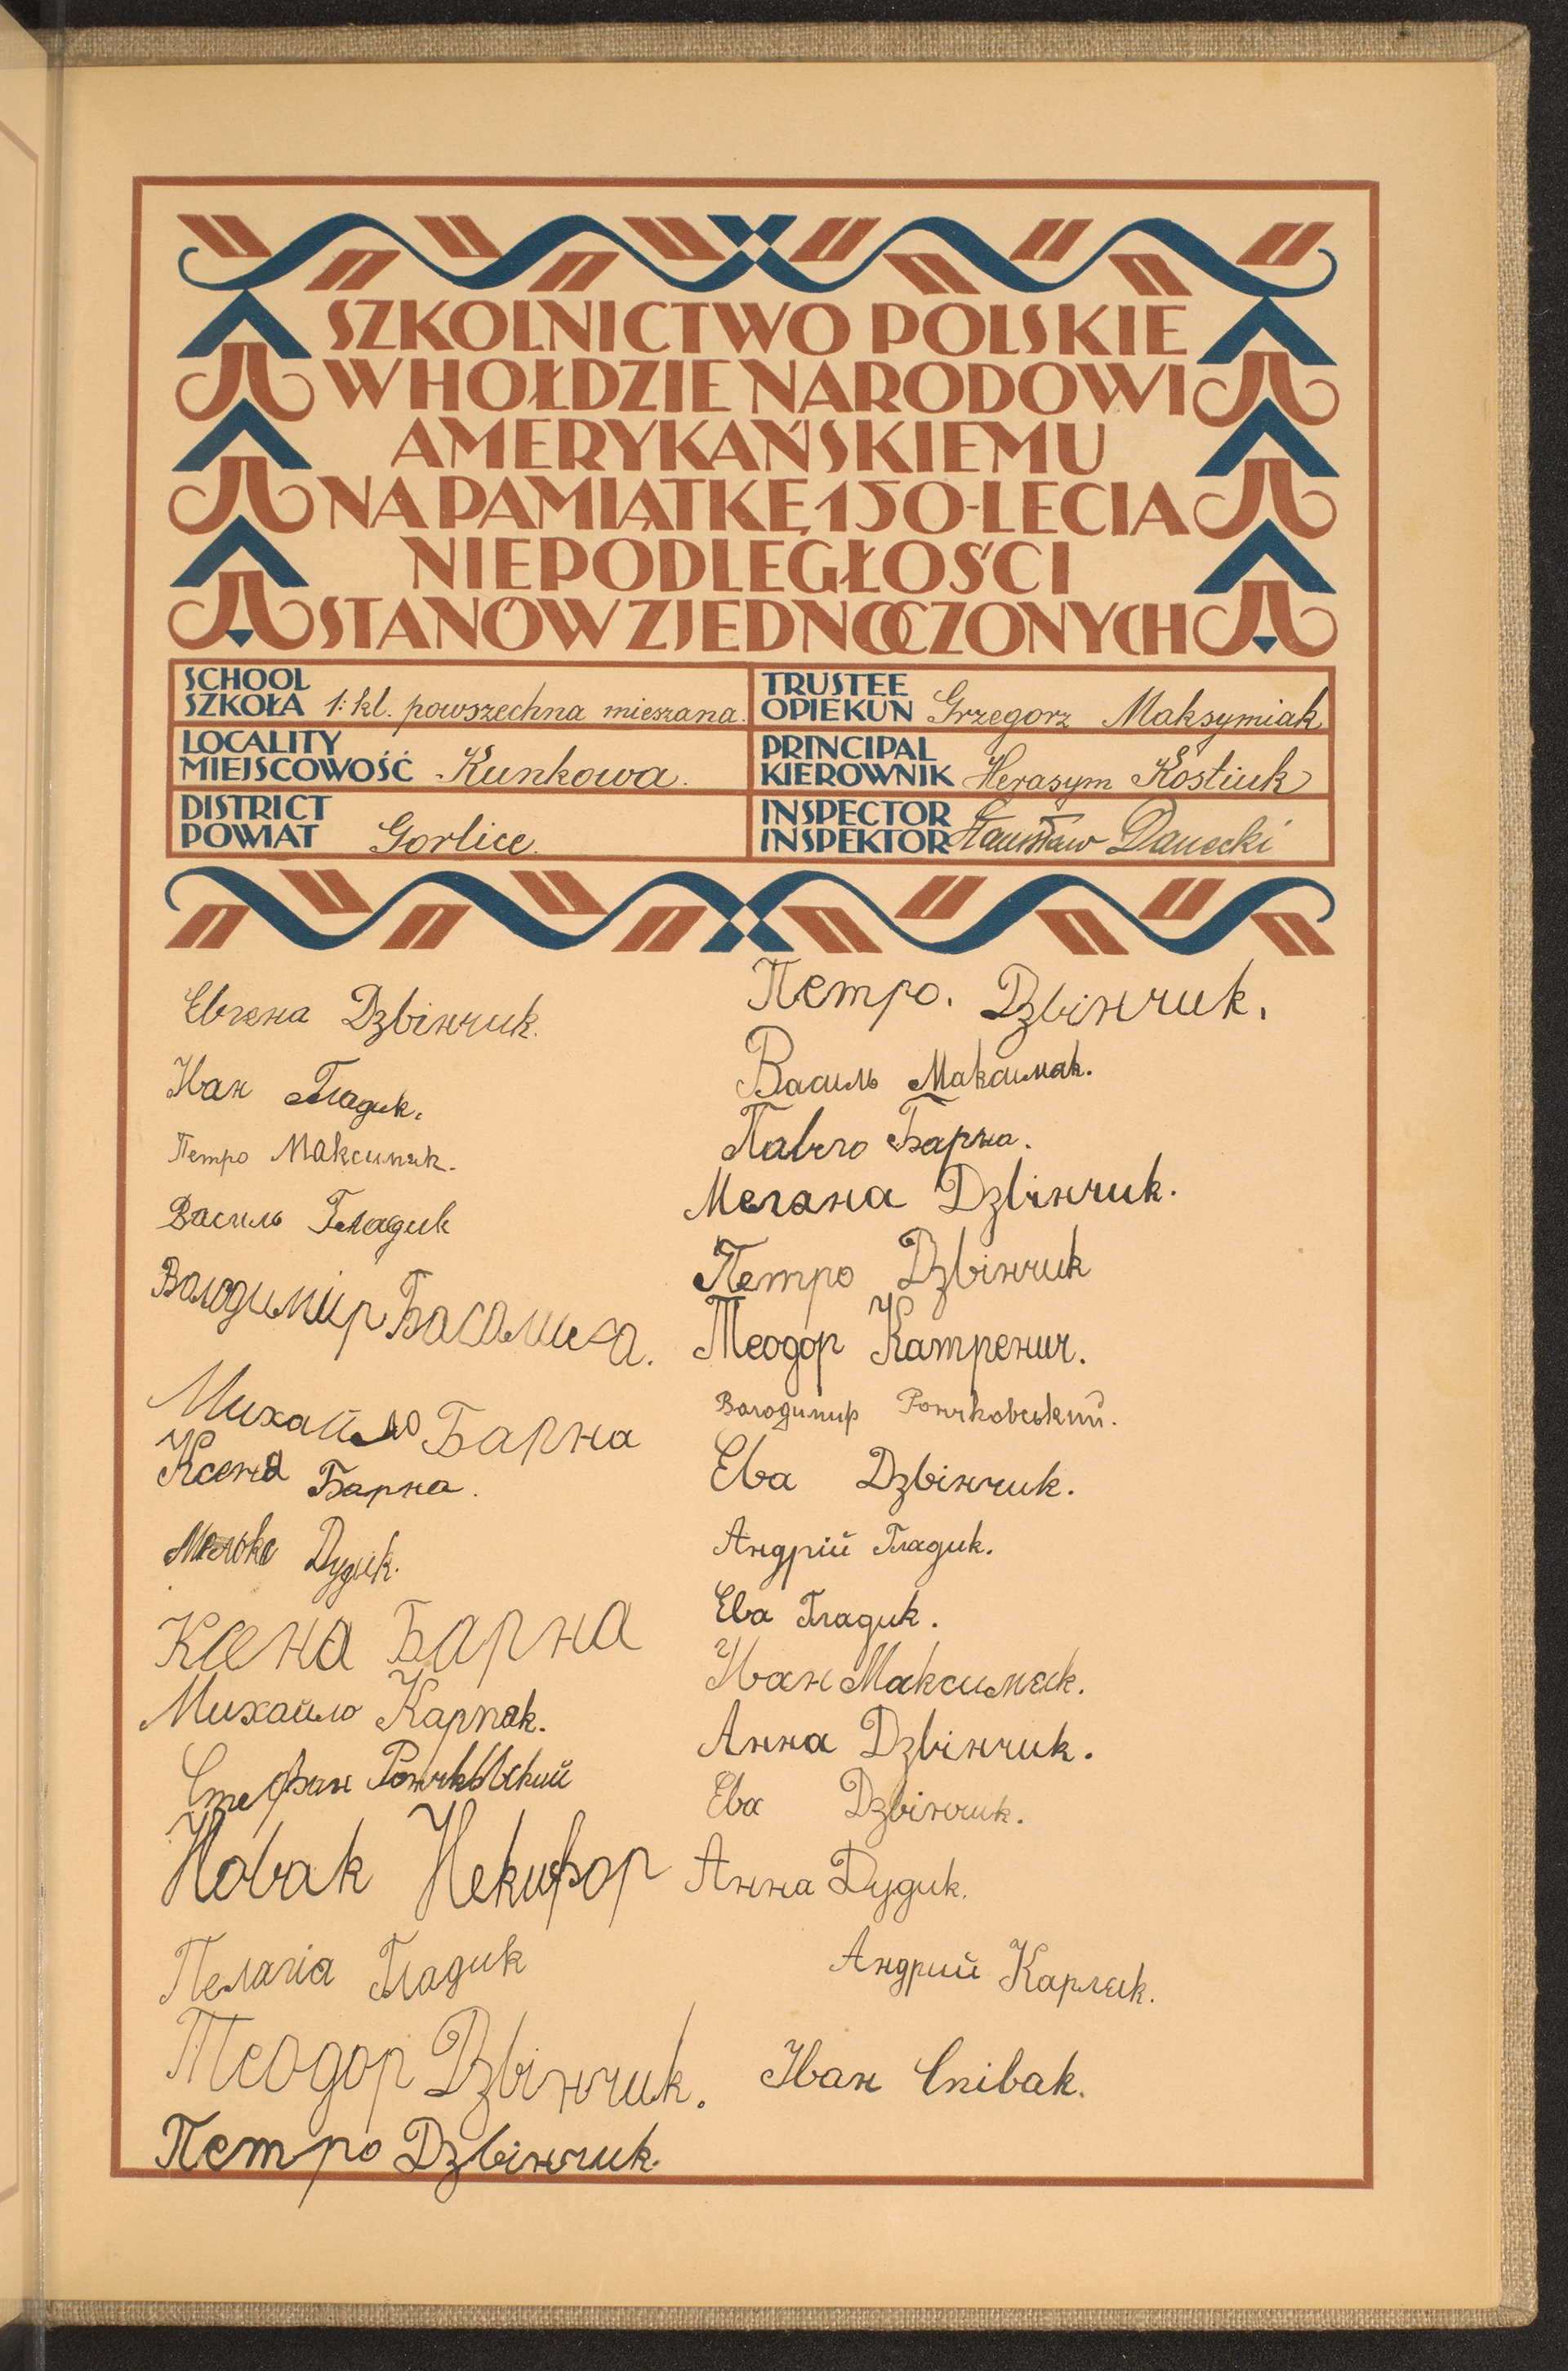 SZKOLNICTWO POLSKIE
W HOŁDZIE NARODOWI
AMERYKAŃSKIEMU
NA PAMIĄTKĘ 150-LECIA
NIEPODLEGŁOŚCI
STANÓW ZJEDNOCZONYCH
SCHOOL
SZKOŁA 1. kl. powszechna mieszana.
LOCALITY
MIEJSCOWOŚĆ Kunkowa.
DISTRICT
POWIAT Gorlice.
TRUSTEE
OPIEKUN Grzegorz Maksymiak
PRINCIPAL
KIEROWNIK Herasym Kostiuk
INSPECTOR
INSPEKTOR Stanisław Danecki
Евгена Дзвінчик.
Іван Гладик.
Петро Максимяк.
Василь Гладик
Володимир
Михайло Барна
Ксеня Барна.
Дудик.
Ксена Барна
Михайло Карпяк.
Стефан Рончковский
Новак Некифор
Пелагія Гладик
Теодор Дзвінчик.
Петро Дзвінчик.
Петро. Дзвінчик.
Василь Максимяк.
Павло Барна.
Меляна Дзвінчик.
Петро Дзвінчик
Теодор Катренич.
Володимир Рончковський.
Ева Дзвінчик.
Андрій Гладик.
Ева Гладик.
Іван Максимяк.
Анна Дзвінчик.
Ева Дзвінчик.
Анна Дудик.
Андрий Карляк.
Іван Співак.